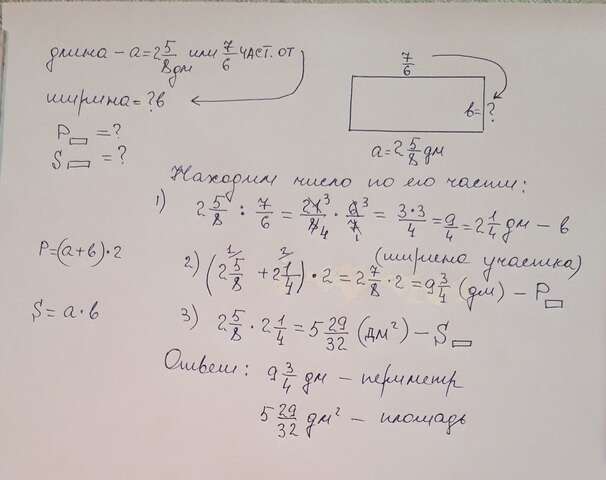 длина - a = 2 5/8 дм или 7/6 част. от
ширина = ? в
P▭ = ?
S▭ = ?
7/6
в = ?
a = 2 5/8 дм
Находим число по его части:
1) 2 5/8 : 7/6 = 21/8 · 6/7 = 3·3/4 = 9/4 = 2 1/4 дм - в
(ширина участка)
P = (a + в) · 2
2) (2 5/8 + 2 1/4) · 2 = 2 7/8 · 2 = 9 3/4 (дм) - P▭
S = a · в
3) 2 5/8 · 2 1/4 = 5 29/32 (дм²) - S▭
Ответ: 9 3/4 дм - периметр
5 29/32 дм² - площадь